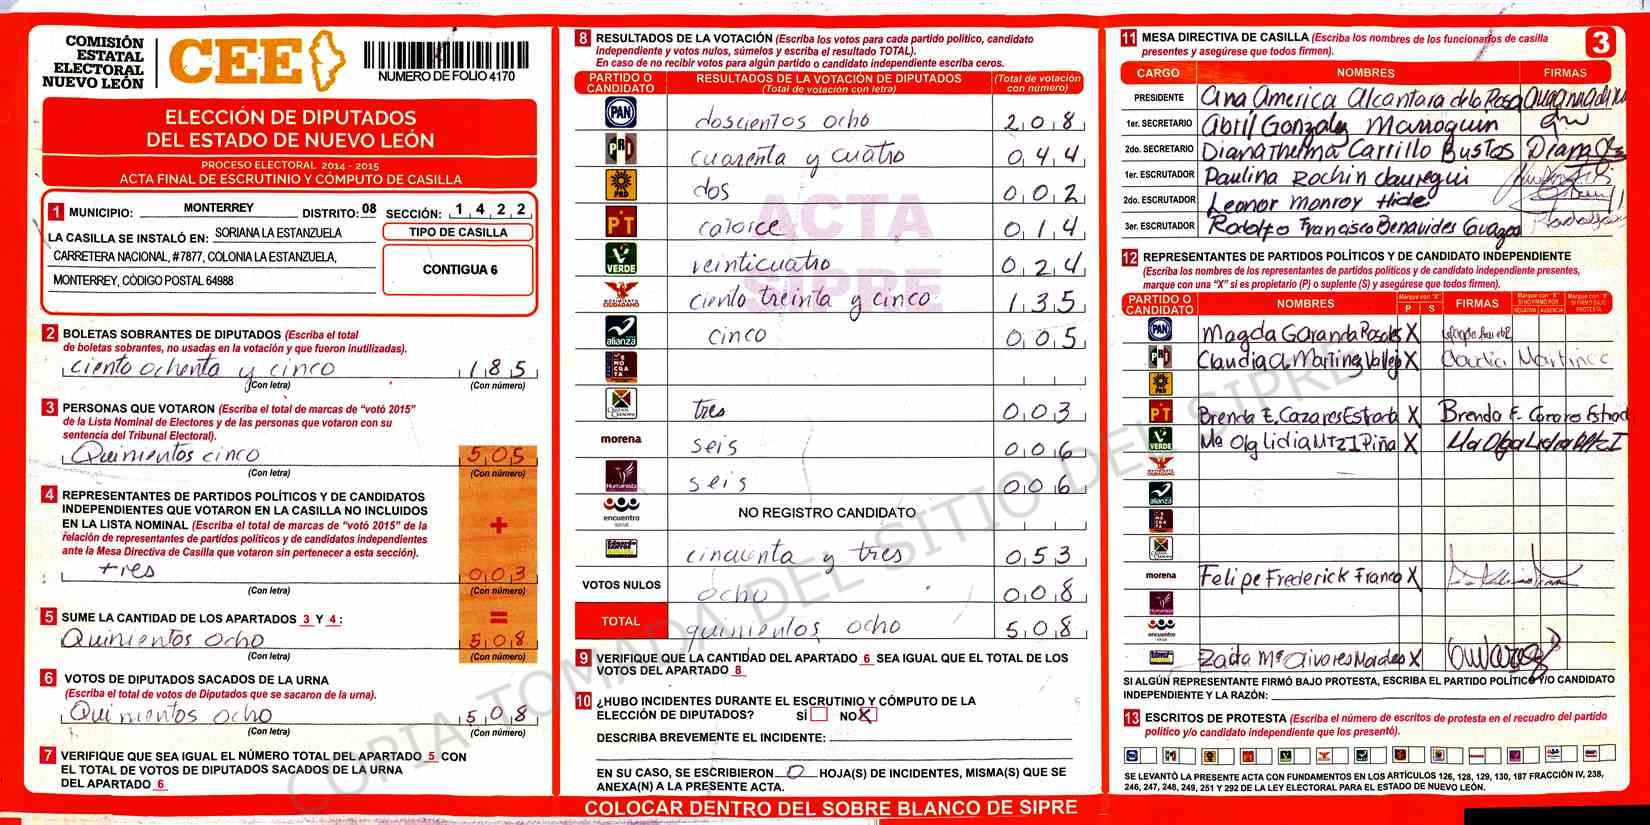 COMISIÓN
ESTATAL
ELECTORAL
NUEVO LEÓN
CEE
NUMERO DE FOLIO 4170
ELECCIÓN DE DIPUTADOS
DEL ESTADO DE NUEVO LEÓN
PROCESO ELECTORAL 2014 - 2015
ACTA FINAL DE ESCRUTINIO Y CÓMPUTO DE CASILLA
1 MUNICIPIO: MONTERREY DISTRITO: 08 SECCIÓN: 1 4 2 2
LA CASILLA SE INSTALÓ EN: SORIANA LA ESTANZUELA
CARRETERA NACIONAL, #7877, COLONIA LA ESTANZUELA,
MONTERREY, CÓDIGO POSTAL 64988
TIPO DE CASILLA
CONTIGUA 6
2 BOLETAS SOBRANTES DE DIPUTADOS (Escriba el total
de boletas sobrantes, no usadas en la votación y que fueron inutilizadas).
ciento ochenta y cinco 1 8 5
(Con letra) (Con número)
3 PERSONAS QUE VOTARON (Escriba el total de marcas de "votó 2015"
de la Lista Nominal de Electores y de las personas que votaron con su
sentencia del Tribunal Electoral).
Quinientos cinco 5 0 5
(Con letra) (Con número)
4 REPRESENTANTES DE PARTIDOS POLÍTICOS Y DE CANDIDATOS
INDEPENDIENTES QUE VOTARON EN LA CASILLA NO INCLUIDOS
EN LA LISTA NOMINAL (Escriba el total de marcas de "votó 2015" de la
relación de representantes de partidos políticos y de candidatos independientes
ante la Mesa Directiva de Casilla que votaron sin pertenecer a esta sección).
+
tres 0 0 3
(Con letra) (Con número)
5 SUME LA CANTIDAD DE LOS APARTADOS 3 Y 4 : =
Quinientos ocho 5 0 8
(Con letra) (Con número)
6 VOTOS DE DIPUTADOS SACADOS DE LA URNA
(Escriba el total de votos de Diputados que se sacaron de la urna).
Quinientos ocho 5 0 8
(Con letra) (Con número)
7 VERIFIQUE QUE SEA IGUAL EL NÚMERO TOTAL DEL APARTADO 5 CON
EL TOTAL DE VOTOS DE DIPUTADOS SACADOS DE LA URNA
DEL APARTADO 6
8 RESULTADOS DE LA VOTACIÓN (Escriba los votos para cada partido político, candidato
independiente y votos nulos, súmelos y escriba el resultado TOTAL).
En caso de no recibir votos para algún partido o candidato independiente escriba ceros.
PARTIDO O CANDIDATO RESULTADOS DE LA VOTACIÓN DE DIPUTADOS (Total de votación con letra) (Total de votación con número)
PAN doscientos ocho 2 0 8
PRI cuarenta y cuatro 0 4 4
PRD dos 0 0 2
PT catorce 0 1 4
VERDE veinticuatro 0 2 4
CIUDADANO ciento treinta y cinco 1 3 5
alianza cinco 0 0 5
DEMOCRATA
tres 0 0 3
morena seis 0 0 6
Humanista seis 0 0 6
encuentro social NO REGISTRO CANDIDATO
cincuenta y tres 0 5 3
VOTOS NULOS ocho 0 0 8
TOTAL quinientos ocho 5 0 8
ACTA
SIPRE
9 VERIFIQUE QUE LA CANTIDAD DEL APARTADO 6 SEA IGUAL QUE EL TOTAL DE LOS
VOTOS DEL APARTADO 8
10 ¿HUBO INCIDENTES DURANTE EL ESCRUTINIO Y CÓMPUTO DE LA
ELECCIÓN DE DIPUTADOS? SÍ NO X
DESCRIBA BREVEMENTE EL INCIDENTE:
EN SU CASO, SE ESCRIBIERON 0 HOJA(S) DE INCIDENTES, MISMA(S) QUE SE
ANEXA(N) A LA PRESENTE ACTA.
COLOCAR DENTRO DEL SOBRE BLANCO DE SIPRE
11 MESA DIRECTIVA DE CASILLA (Escriba los nombres de los funcionarios de casilla
presentes y asegúrese que todos firmen).
3
CARGO NOMBRES FIRMAS
PRESIDENTE Ana America Alcantara de la Rosa
1er. SECRETARIO Abril Gonzalez Marroquin
2do. SECRETARIO Diana Thelma Carrillo Bustos Diana
1er. ESCRUTADOR Paulina Rochin Jauregui
2do. ESCRUTADOR Leonor Monroy Hide
3er. ESCRUTADOR Rodolfo Francisco Benavides Cavazos
12 REPRESENTANTES DE PARTIDOS POLÍTICOS Y DE CANDIDATO INDEPENDIENTE
(Escriba los nombres de los representantes de partidos políticos y de candidato independiente presentes,
marque con una "X" si es propietario (P) o suplente (S) y asegúrese que todos firmen).
PARTIDO O CANDIDATO NOMBRES Marque con "X" P S FIRMAS Marque con "X" SI NO FIRMÓ POR NEGATIVA AUSENCIA Marque con "X" SI FIRMÓ BAJO PROTESTA
PAN Magda Garanda Rosales X
PRI Claudia A. Martinez Vallejo X Claudia Martinez
PRD
PT Brenda E. Cazares Estrada X Brenda E.
VERDE Ma Olg Lidia Mtz I Piña X Ma Olga Lidia
alianza
morena Felipe Frederick Franco X
encuentro social
Zaida Ma Olvares Morales X
SI ALGÚN REPRESENTANTE FIRMÓ BAJO PROTESTA, ESCRIBA EL PARTIDO POLÍTICO Y/O CANDIDATO
INDEPENDIENTE Y LA RAZÓN:
13 ESCRITOS DE PROTESTA (Escriba el número de escritos de protesta en el recuadro del partido
político y/o candidato independiente que los presentó).
SE LEVANTÓ LA PRESENTE ACTA CON FUNDAMENTOS EN LOS ARTÍCULOS 126, 128, 129, 130, 187 FRACCIÓN IV, 238,
246, 247, 248, 249, 251 Y 292 DE LA LEY ELECTORAL PARA EL ESTADO DE NUEVO LEÓN.
COPIA TOMADA DEL SITIO DEL SIPRE